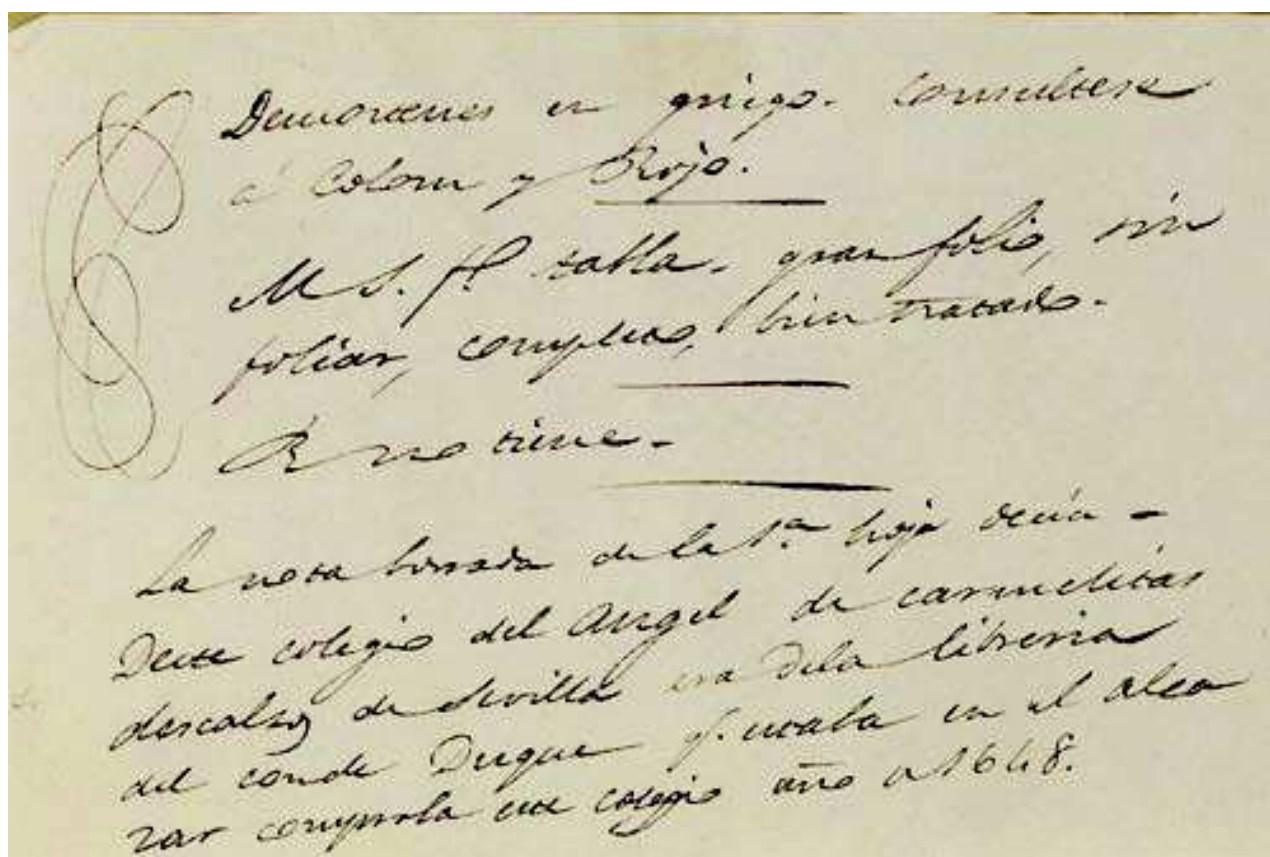 Demostenes en griego. Consultese
á Colom y Rojo.
M S. fl tabla. gran folio, sin
foliar, completo, bien tratado.
R no tiene.
La nota borrada de la 1.ª hoja decia -
Deste colegio del Angel de carmelitas
descalzos de Sevilla era dela libreria
del conde Duque q. estaba en el alca
zar comprola este colegio año d 1648.